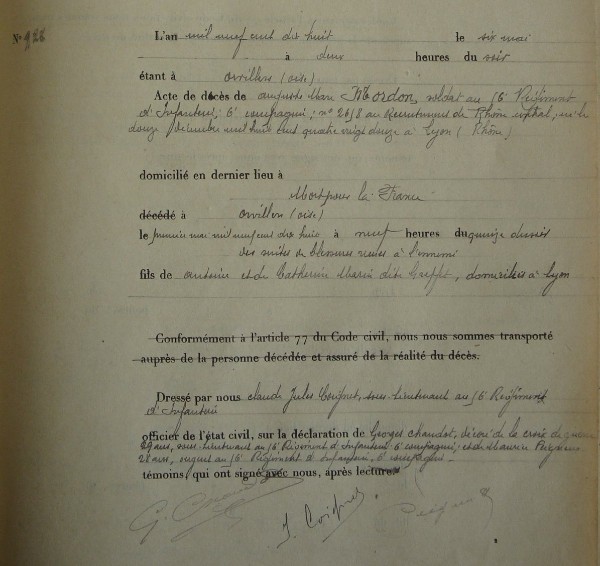 N° 928
L'an mil neuf cent dix huit le six mai
à deux heures du soir
étant à Orvillers (oise).
Acte de décès de auguste Marc Mordon, soldat au 16e Régiment
d'Infanterie, 6e compagnie, n° 2698 au Recrutement de Rhône central, né le
douze décembre mil huit cent quatre vingt douze à Lyon (Rhône)
domicilié en dernier lieu à
Mort pour la France
décédé à Orvillers (oise)
le premier mai mil neuf cent dix huit à neuf heures du
des suites de blessures reçues à l'ennemi
fils de antoine et de Catherine Marie dite Greffet, domiciliés à Lyon
Conformément à l'article 77 du Code civil, nous nous sommes transporté
auprès de la personne décédée et assuré de la réalité du décès.
Dressé par nous Claude Jules Coignet, sous-lieutenant au 16e Régiment
d'Infanterie
officier de l'état civil, sur la déclaration de Georges Chaudot, décoré de la croix de guerre
29 ans, sous-lieutenant au 16e Régiment d'Infanterie 6e compagnie, et de Maurice
28 ans, sergent au 16e Régiment d'Infanterie, 6e compagnie
témoins, qui ont signé avec nous, après lecture.
J. Coignet